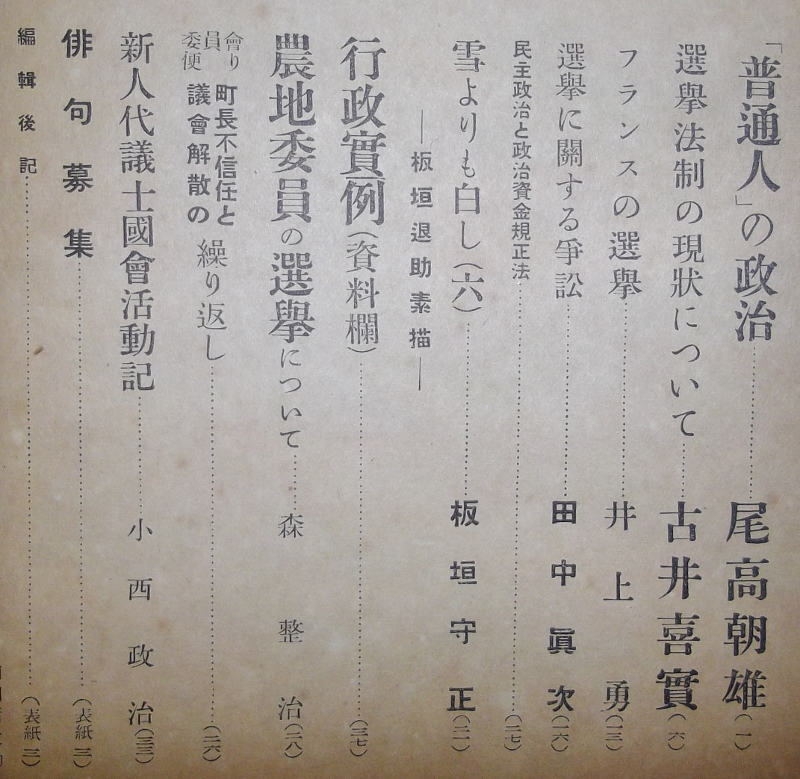 「普通人」の政治……尾高朝雄(一)
選擧法制の現狀について……古井喜實(六)
フランスの選擧……井上勇(一三)
選擧に關する爭訟……田中眞次(一六)
民主政治と政治資金規正法……(一七)
雪よりも白し(六)……板垣守正(二一)
―板垣退助素描―
行政實例(資料欄)……(三七)
農地委員の選擧について……森整治(二八)
委員會便り 町長不信任と議會解散の繰り返し……(二六)
新人代議士國會活動記……小西政治(三三)
俳句募集……(表紙三)
編輯後記……(表紙三)